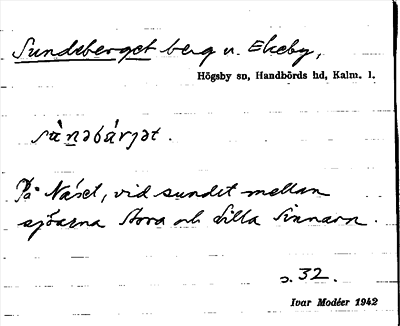 Sundsberget berg u. Ekeby,
Högsby sn, Handbörds hd, Kalm. l.
sùnəbárjət.
På Näset, vid sundet mellan
sjöarna Stora och Lilla Sinnarn.
s. 32.
Ivar Modéer 1942